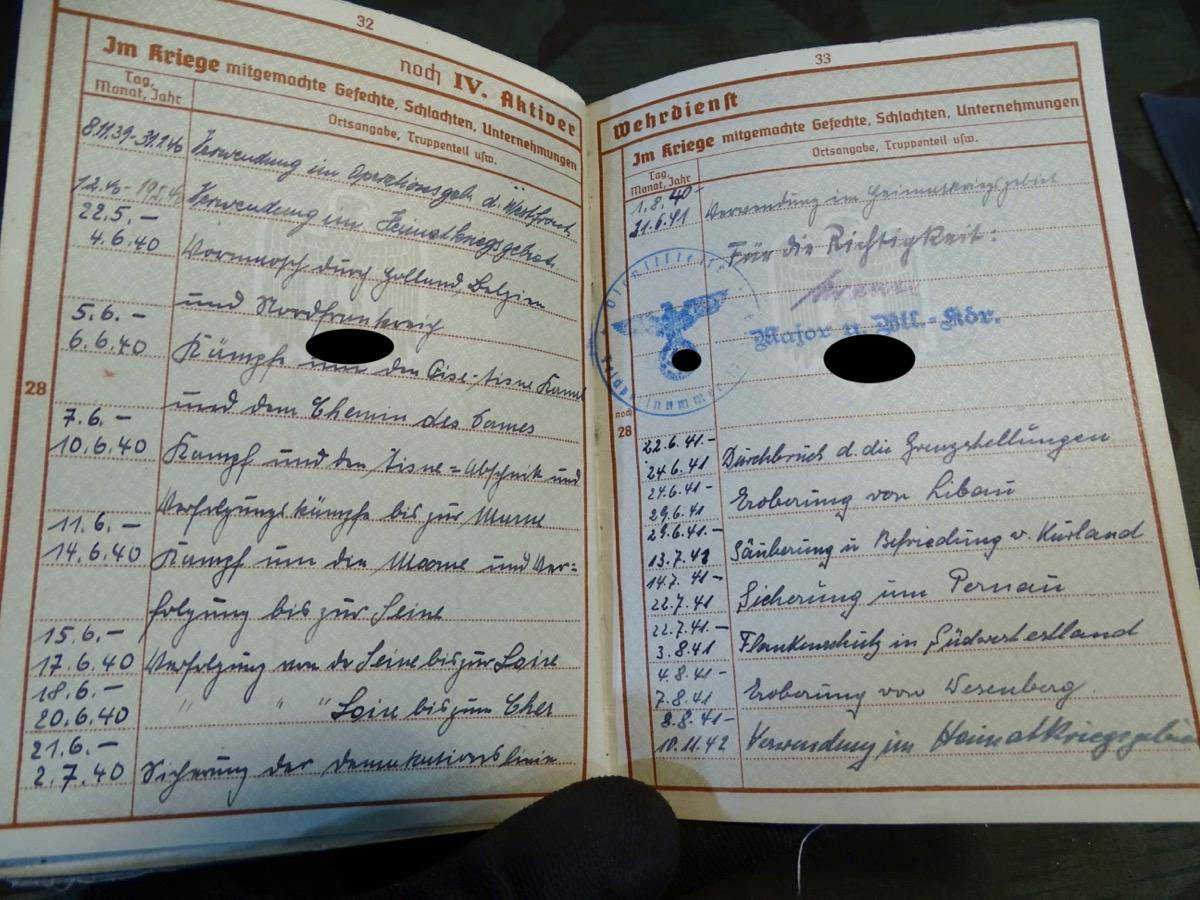 32
noch IV. Aktiver
Im Kriege mitgemachte Gefechte, Schlachten, Unternehmungen
Tag, Monat, Jahr
Ortsangabe, Truppenteil usw.
8.11.39-31.1.40 Verwendung im Operationsgeb. d. Westfront
1.2.40 - 19.5.40 Verwendung im Heimatkriegsgebiet
22.5. -
4.6.40 Vormarsch durch Holland, Belgien
und Nordfrankreich
5.6. -
6.6.40 Kämpfe um den Oise-Aisne Kanal
und dem Chemin des Dames
7.6. -
10.6.40 Kampf und den Aisne=Abschnitt und
Verfolgungskämpfe bis zur Marne
11.6. -
14.6.40 Kampf um die Marne und Ver=
folgung bis zur Seine
15.6. -
17.6.40 Verfolgung von der Seine bis zur Loire
18.6. -
20.6.40 " " " Loire bis zum Cher
21.6. -
2.7.40 Sicherung der Demarkationslinie
28
33
Wehrdienst
Im Kriege mitgemachte Gefechte, Schlachten, Unternehmungen
Tag, Monat, Jahr
Ortsangabe, Truppenteil usw.
1.8.40-
21.6.41 Verwendung im Heimatkriegsgebiet
Für die Richtigkeit:
Major u. Btl.-Kdr.
noch
28
22.6.41.-
24.6.41 Durchbruch d. die Grenzstellungen
24.6.41
29.6.41 Eroberung von Libau
29.6.41.-
13.7.41 Säuberung u Befriedung v. Kurland
14.7.41-
22.7.41 Sicherung um Pernau
22.7.41.-
3.8.41 Flankenschutz in Südwestestland
4.8.41-
7.8.41 Eroberung von Wesenberg.
8.8.41-
10.11.42 Verwendung im Heimatkriegsgebiet